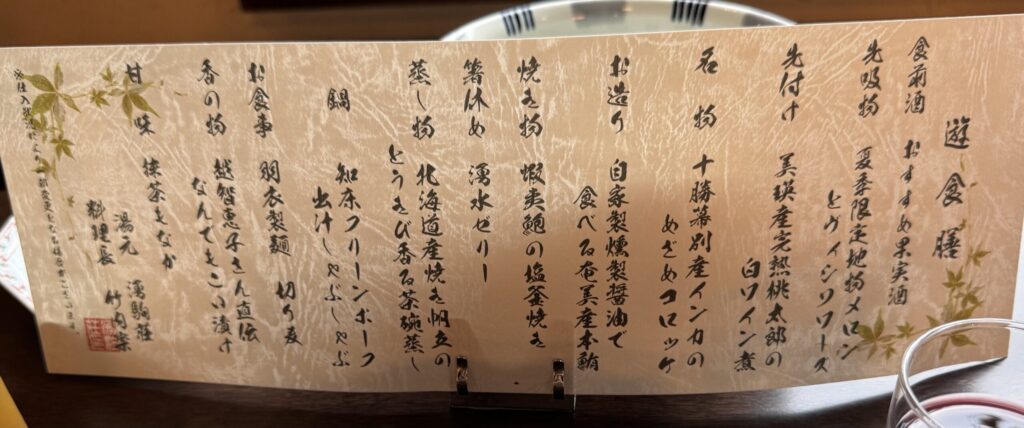 遊食膳
食前酒 おすすめ果実酒
先吸物 夏季限定地物メロン
とヴィシソワーズ
先付け 美瑛産完熟桃太郎の
白ワイン煮
名物 十勝幕別産インカの
めざめコロッケ
お造り 自家製燻製醤油で
食べる奄美産本鮪
焼き物 蝦夷鮑の塩釜焼き
箸休め 湧水ゼリー
蒸し物 北海道産焼き帆立の
とうきび香る茶碗蒸し
鍋 知床フリーンポーフ
出汁しゃぶしゃぶ
お食事 羽衣製麺 切り麦
香の物 越智恵子さん直伝
なんてもこい漬け
甘味 抹茶もなか
湯元 湧駒荘
料理長 竹内